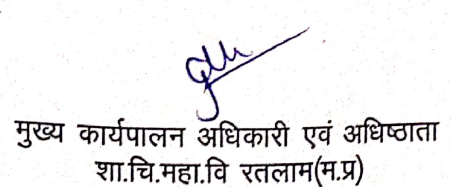 मुख्य कार्यपालन अधिकारी एवं अधिष्ठाता
शा.चि.महा.वि रतलाम(म.प्र)